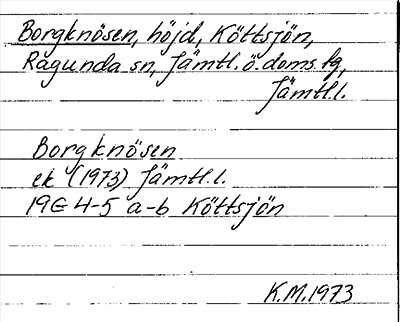 Borgknösen, höjd, Köttsjön,
Ragunda sn, Jämtl. ö. doms. fg,
Jämtl.l.
Borgknösen
ek (1973) Jämtl.l.
19G 4-5 a-b Köttsjön
K.M.1973